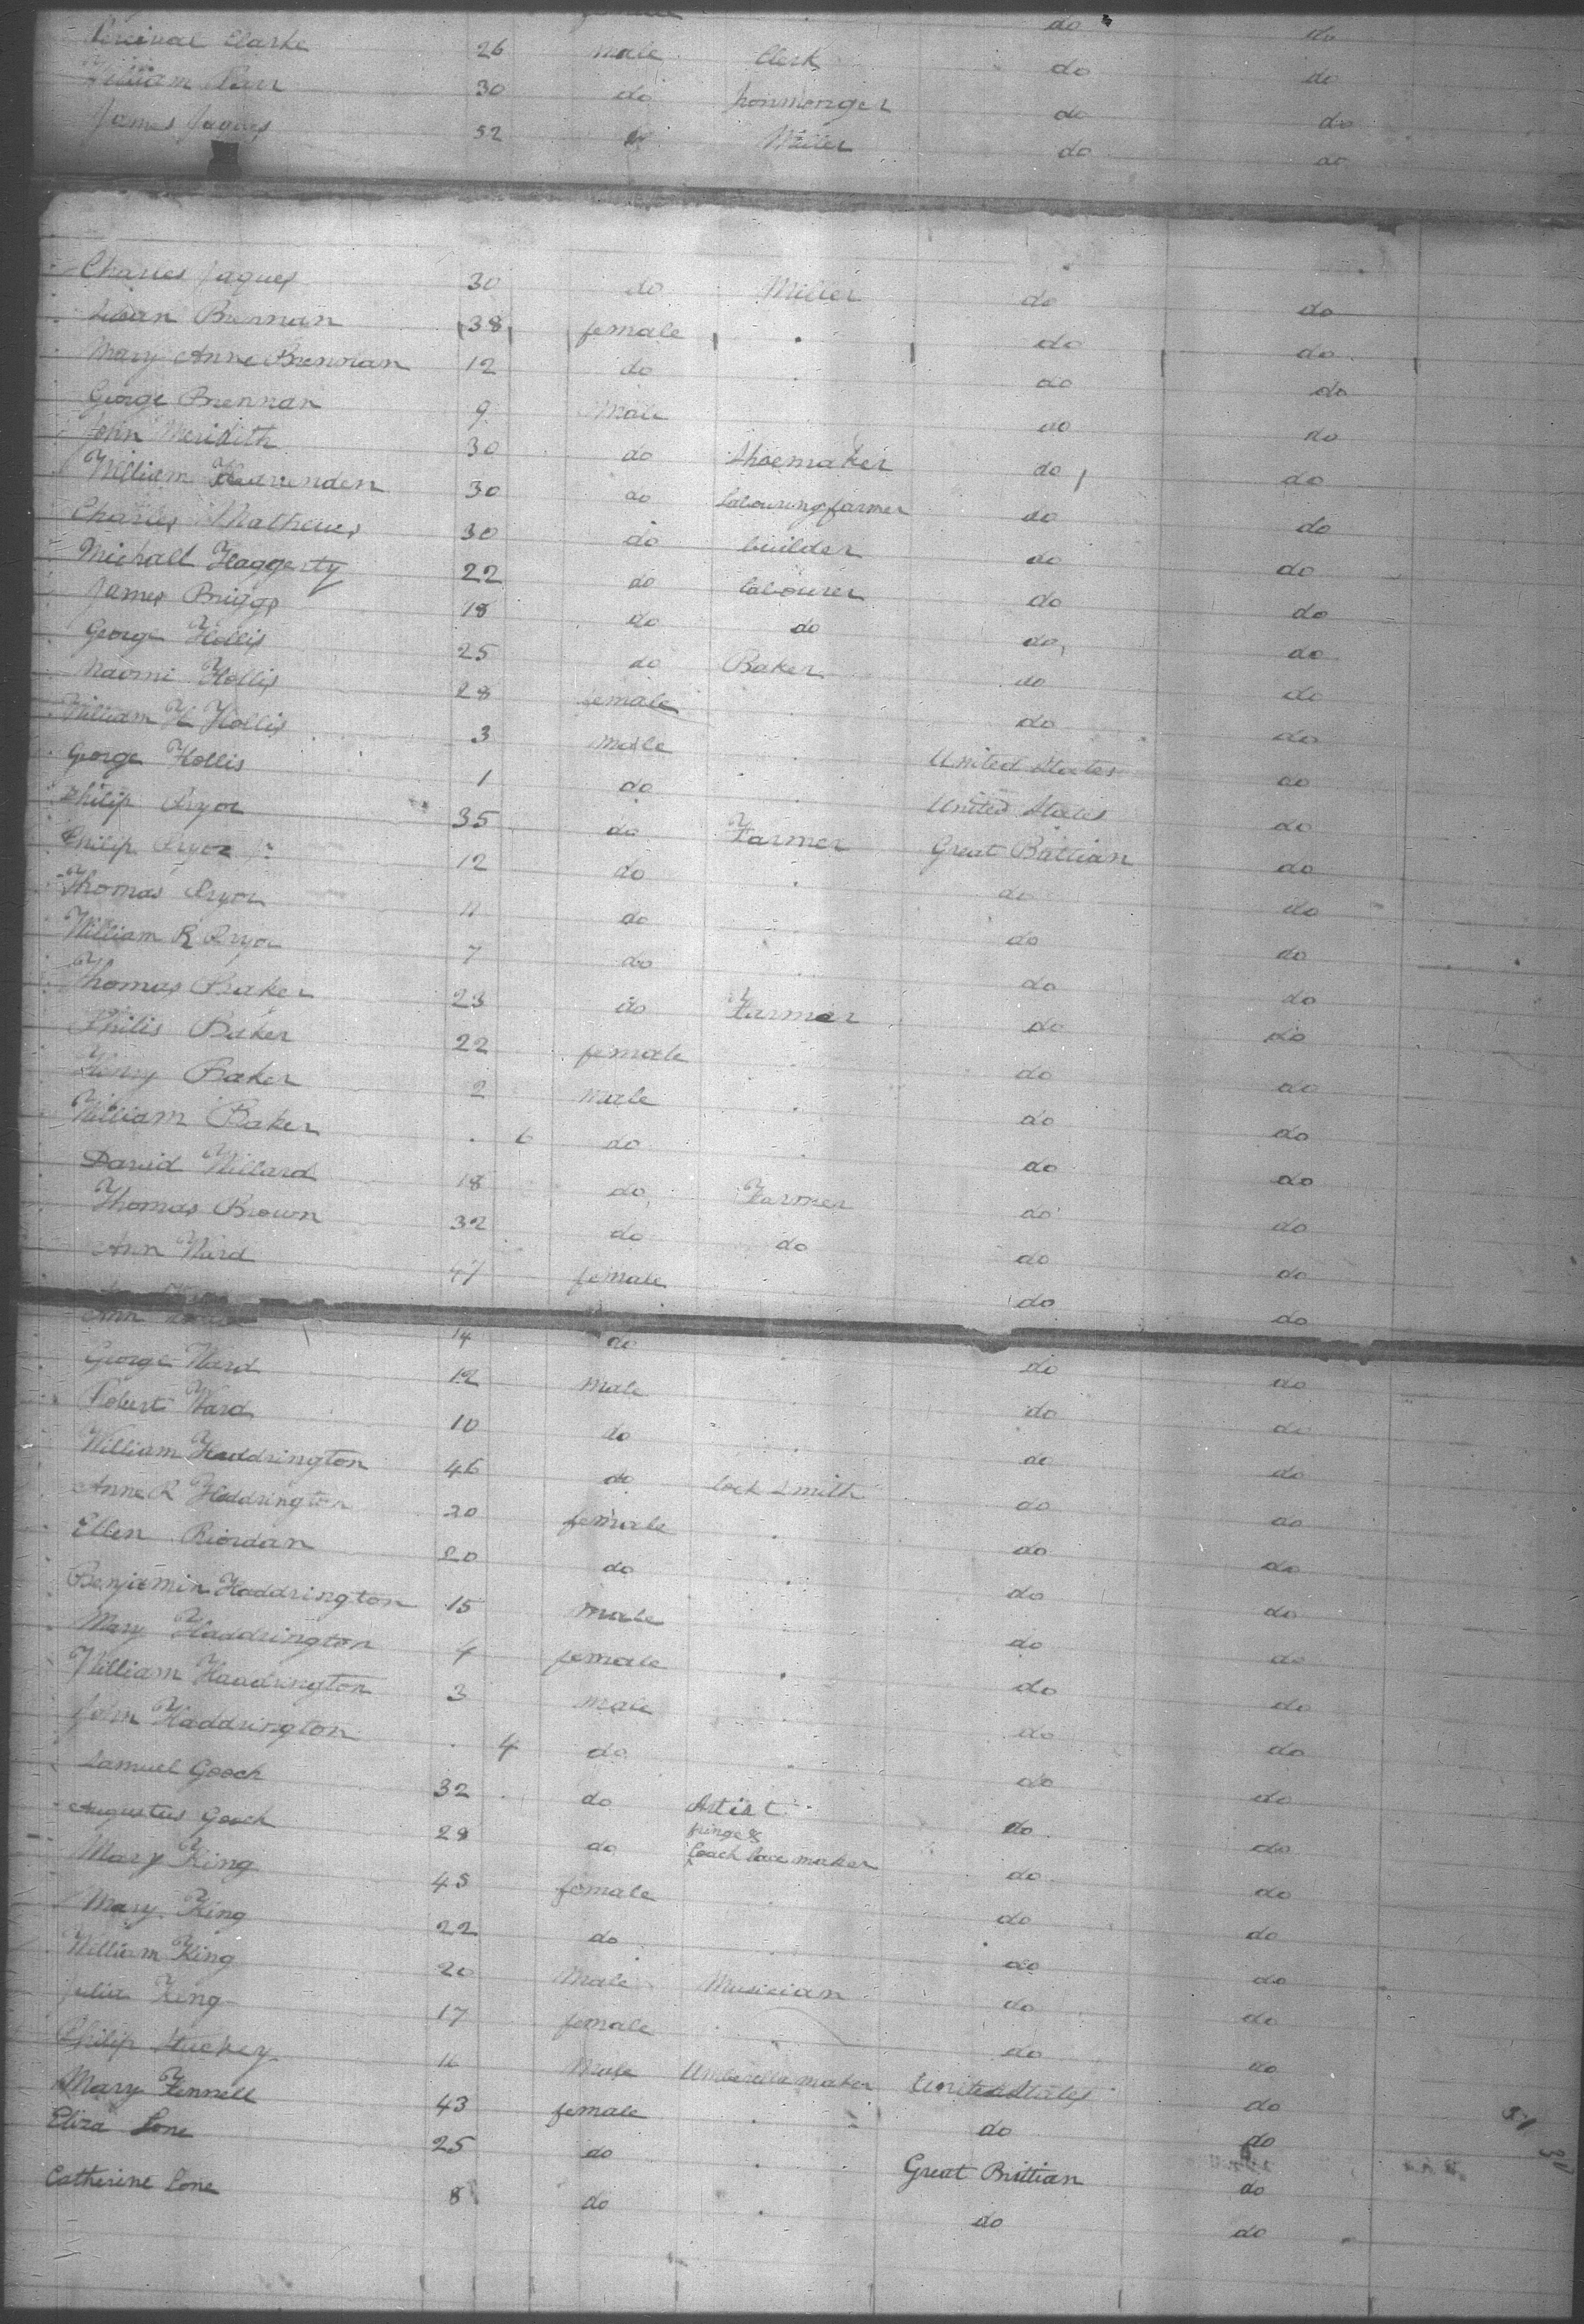 do do
Percival Clarke 26 male Clerk do do
William Parr 30 do Ironmonger do do
James Jaques 32 do Miller do do
Charles Jaques 30 do Miller do do
Susan Brennan 38 female do do
Mary Anne Brennan 12 do do do
George Brennan 9 Male do do
John Meridith 30 do Shoemaker do do
William Heavenden 30 do labouring farmer do do
Charles Mathews 30 do builder do do
Michall Haggerty 22 do labourer do do
James Briggs 18 do do do do
George Hollis 25 do Baker do do
Naomi Hollis 28 female do do
William H Hollis 3 male United States do
George Hollis 1 do United States do
Philip Pryor 35 do Farmer Great Brittian do
Philip Pryor Jr 12 do do do
Thomas Pryor 11 do do do
William R Pryor 7 do do do
Thomas Baker 23 do Farmer do do
Philis Baker 22 female do do
Henry Baker 2 Male do do
William Baker 6 do do do
David Willard 18 do Farmer do do
Thomas Brown 32 do do do do
Ann Ward 47 female do do
Ann 14 do do do
George Ward 12 Male do do
Robert Ward 10 do do do
William Haddrington 46 do lock Smith do do
Anne R Haddrington 20 female do do
Ellen Riordan 20 do do do
Benjamin Haddrington 15 male do do
Mary Haddrington 4 female do do
William Haddrington 3 male do do
John Haddrington 4 do do do
Samuel Gooch 32 do Artist do do
Augustus Gooch 29 do fringe & Coach lace maker do do
Mary King 45 female do do
Mary King 22 do do do
William King 20 Male Musician do do
Julia King 17 female do do
Philip Stuckey 16 Male Umberella maker United States do
Mary Fennell 43 female do do
Eliza Lone 25 do Great Brittian do
Catherine Lone 8 do do do